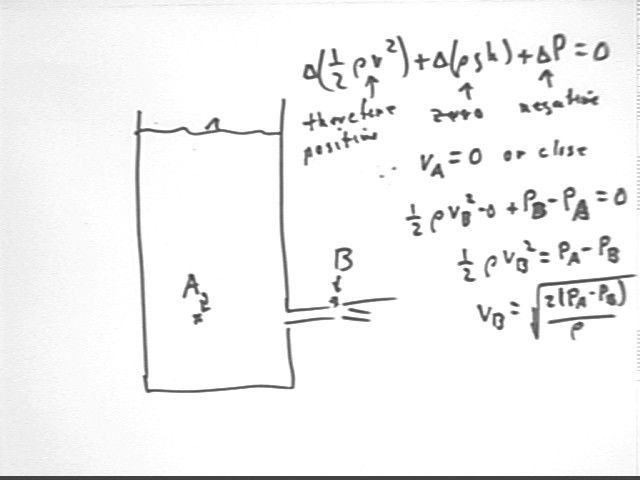 Δ(½ρv²)+Δ(ρgh)+ΔP=0
↑ ↑ ↑
therefore zero negative
positive
∴ v_A=0 or close
½ρv_B²-0+P_B-P_A=0
½ρv_B²=P_A-P_B
v_B=√(2(P_A-P_B)/ρ)
B
A